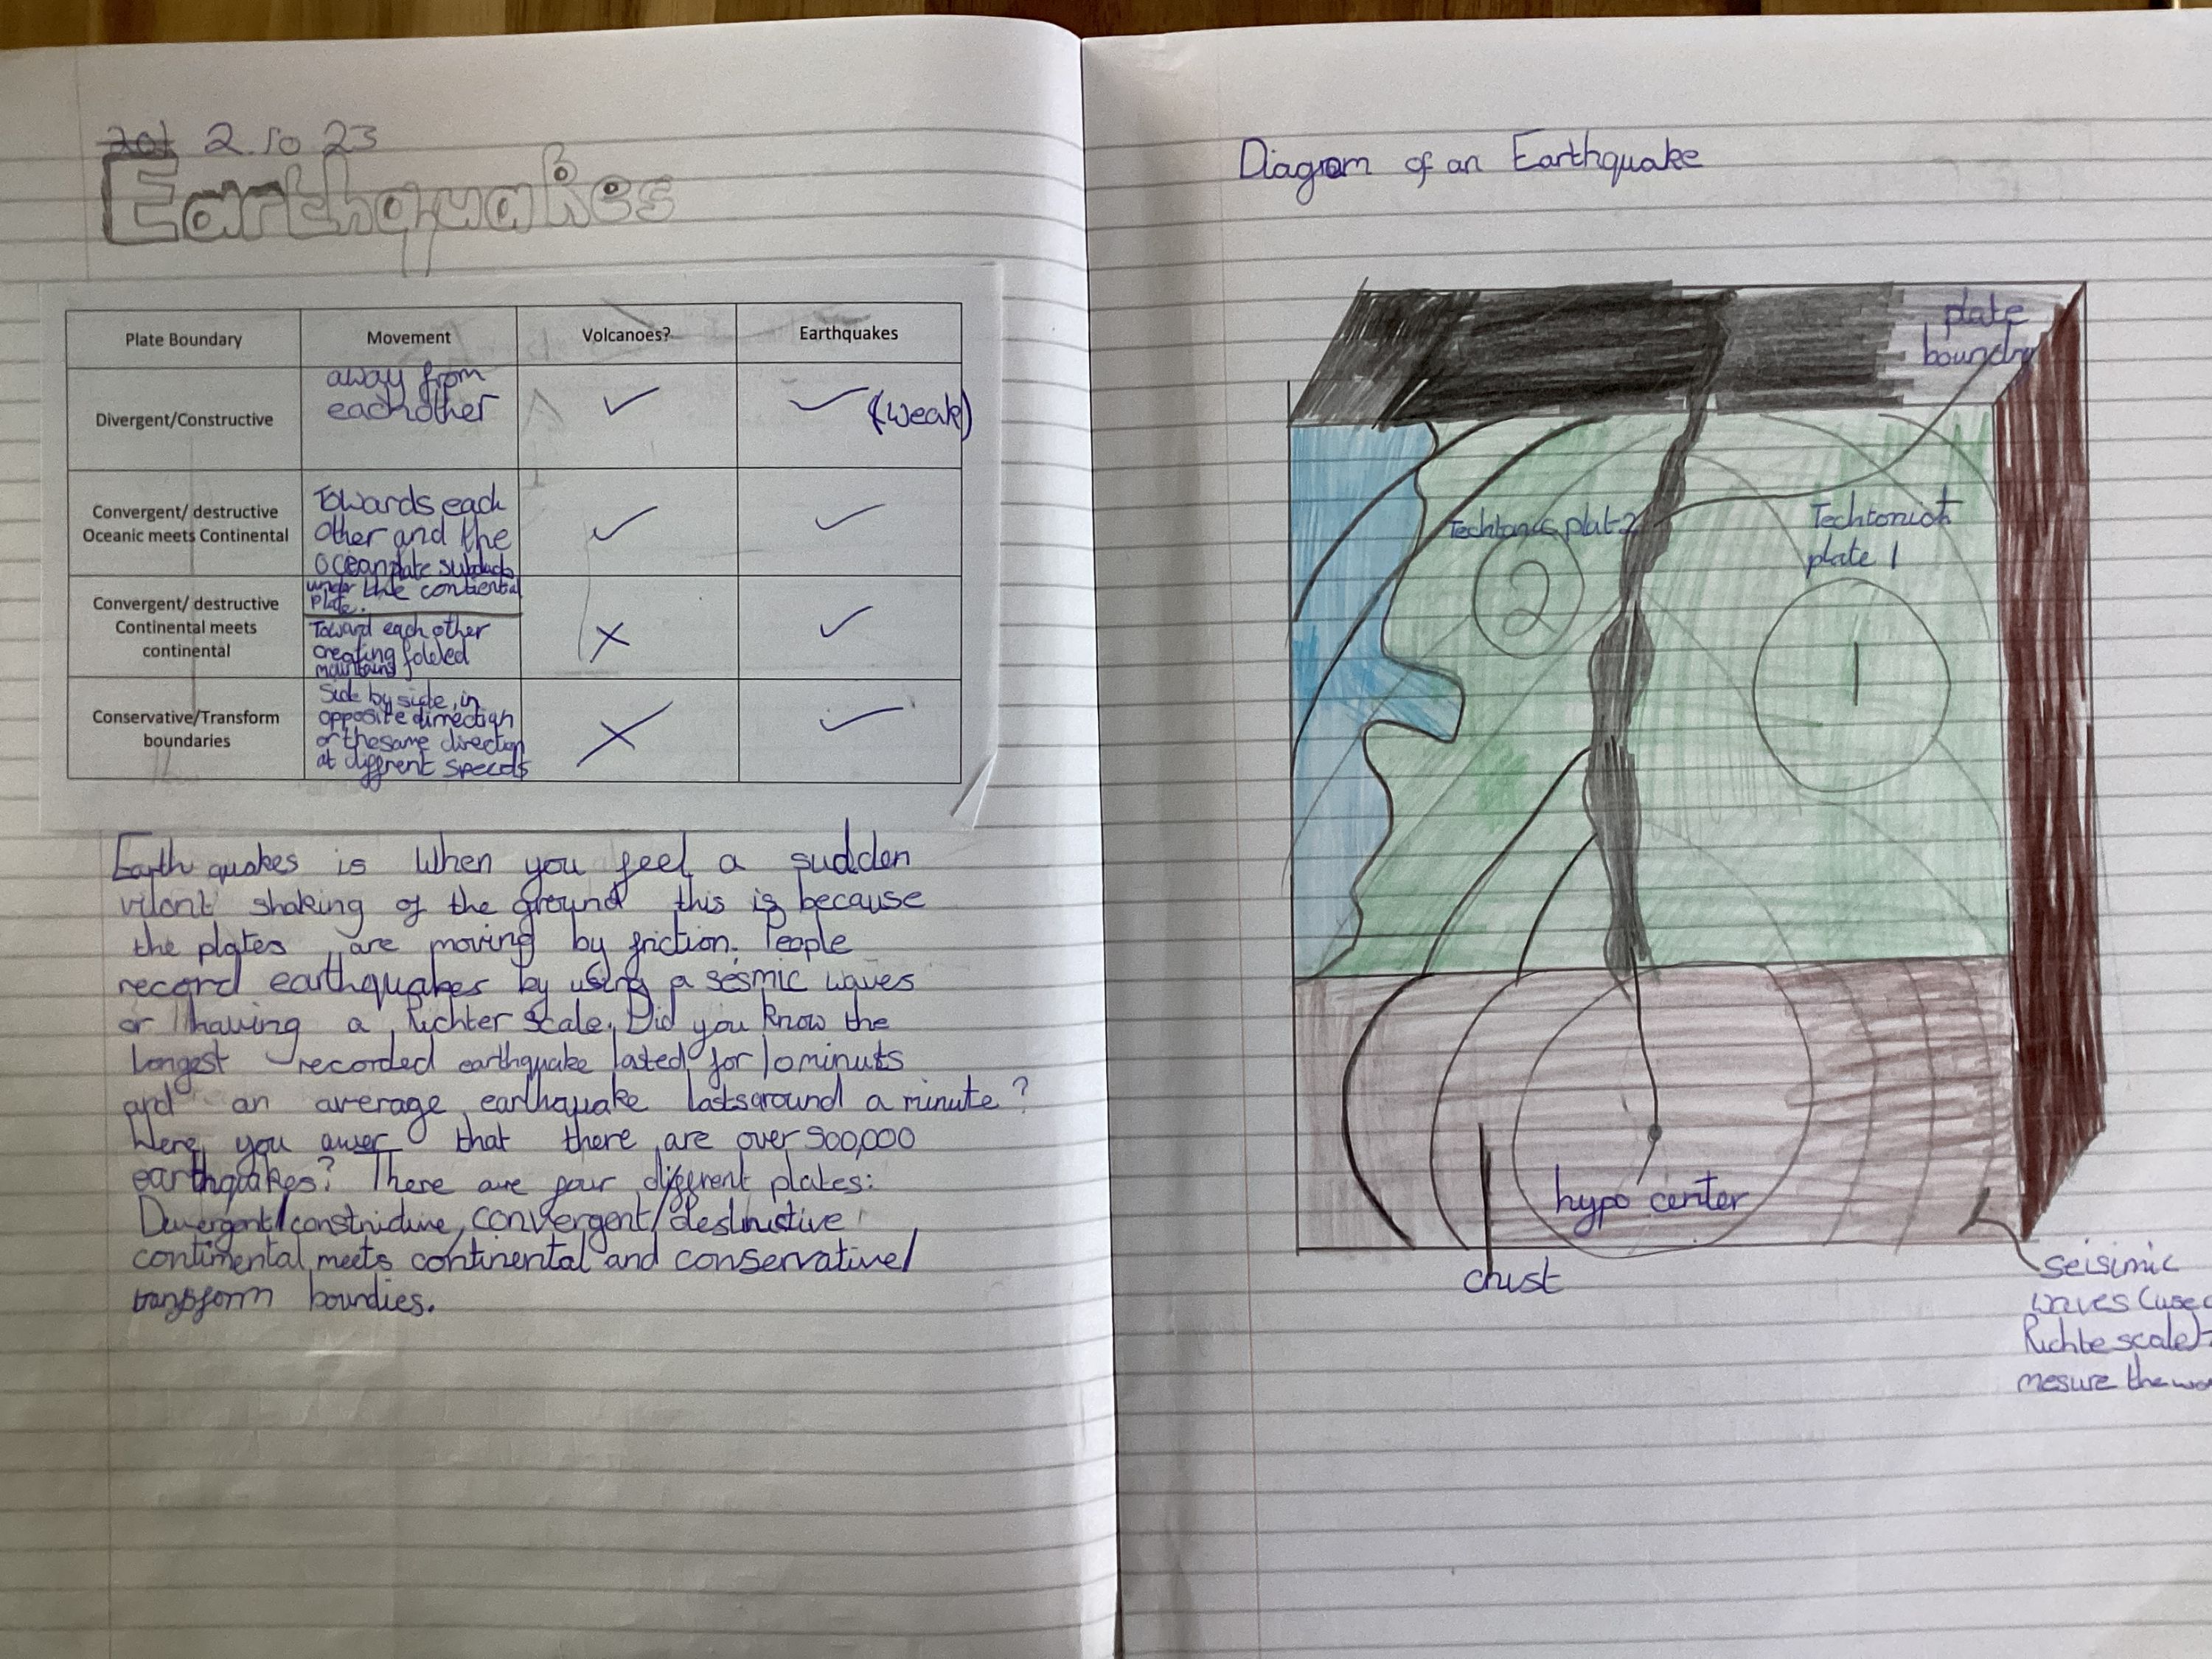 2.10 23
Earthquakes
Plate Boundary
Movement
Volcanoes?
Earthquakes
Divergent/Constructive
away from
eachother
(weak)
Convergent/ destructive
Oceanic meets Continental
Towards each
other and the
oceanplate subducts
under the contiental
plate.
Convergent/ destructive
Continental meets
continental
Toward each other
creating folded
mountains
Conservative/Transform
boundaries
Side by side, in
opposite dirrection
or the same direction
at diffrent speeds
Earth quakes is when you feel a sudden
vilont shaking of the ground this is because
the plates are moving by friction. People
record earthquakes by using a sesmic waves
or having a Richter scale. Did you know the
longest recorded earthquake lasted for 10 minuts
and an average earthquake lasts around a minute?
Were you awer that there are over 500,000
earthquakes? There are four diffrent plates:
Divergent/constructive, convergent/destructive
contimental meets continental and conservative/
transform boundies.
Diagram of an Earthquake
plate
boundry
Techtonic plat 2
2
Techtonict
plate 1
1
hypo center
crust
seisimic
waves (use
Richte scale)
mesure the